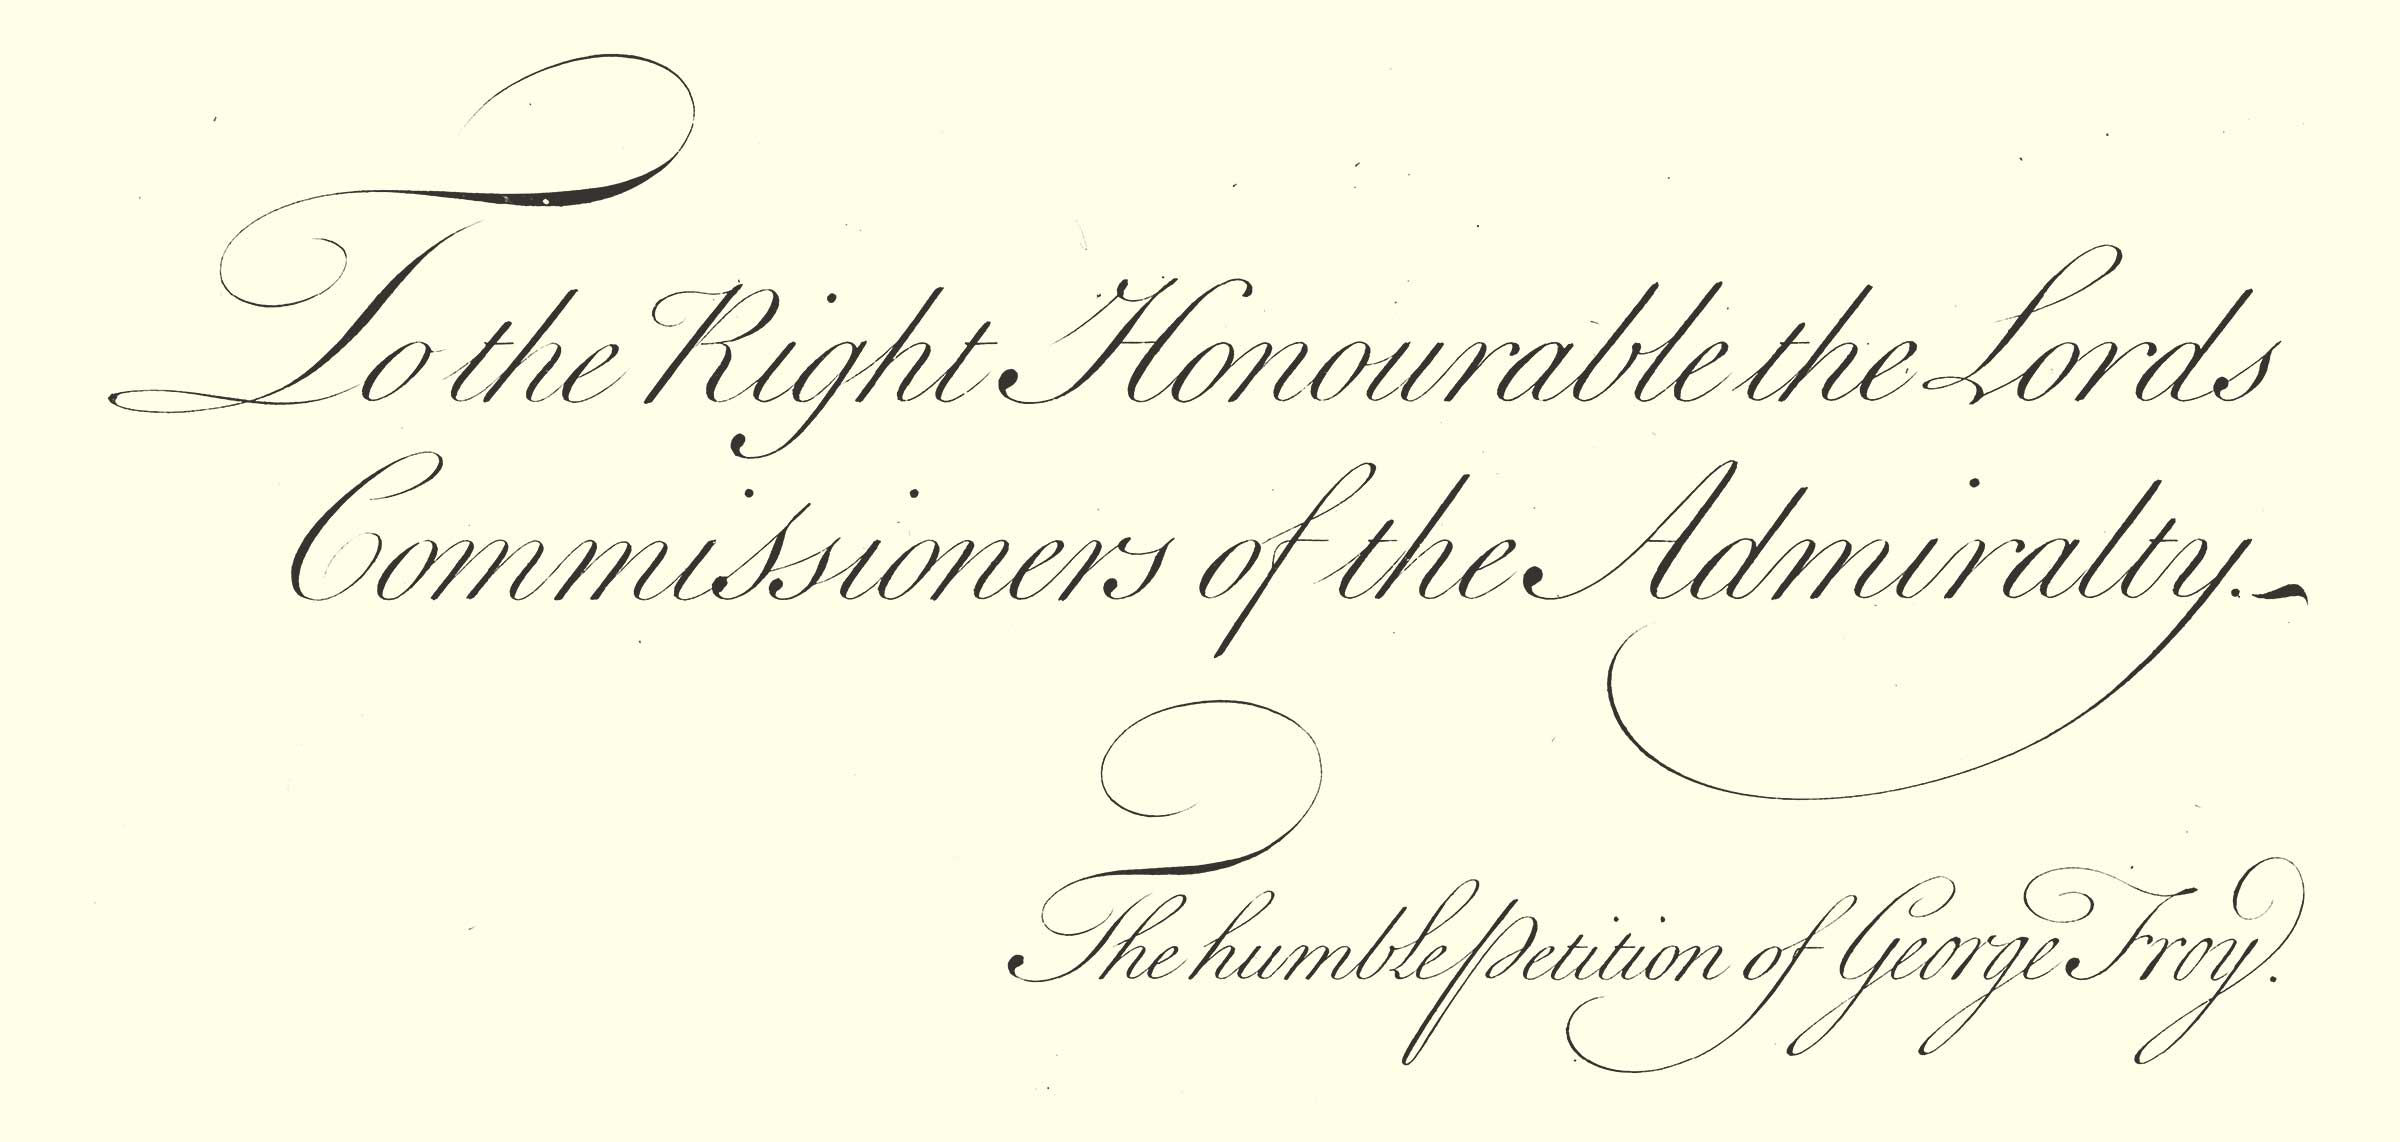 To the Right Honourable the Lords
Commissioners of the Admiralty.
The humble Petition of George Froy.